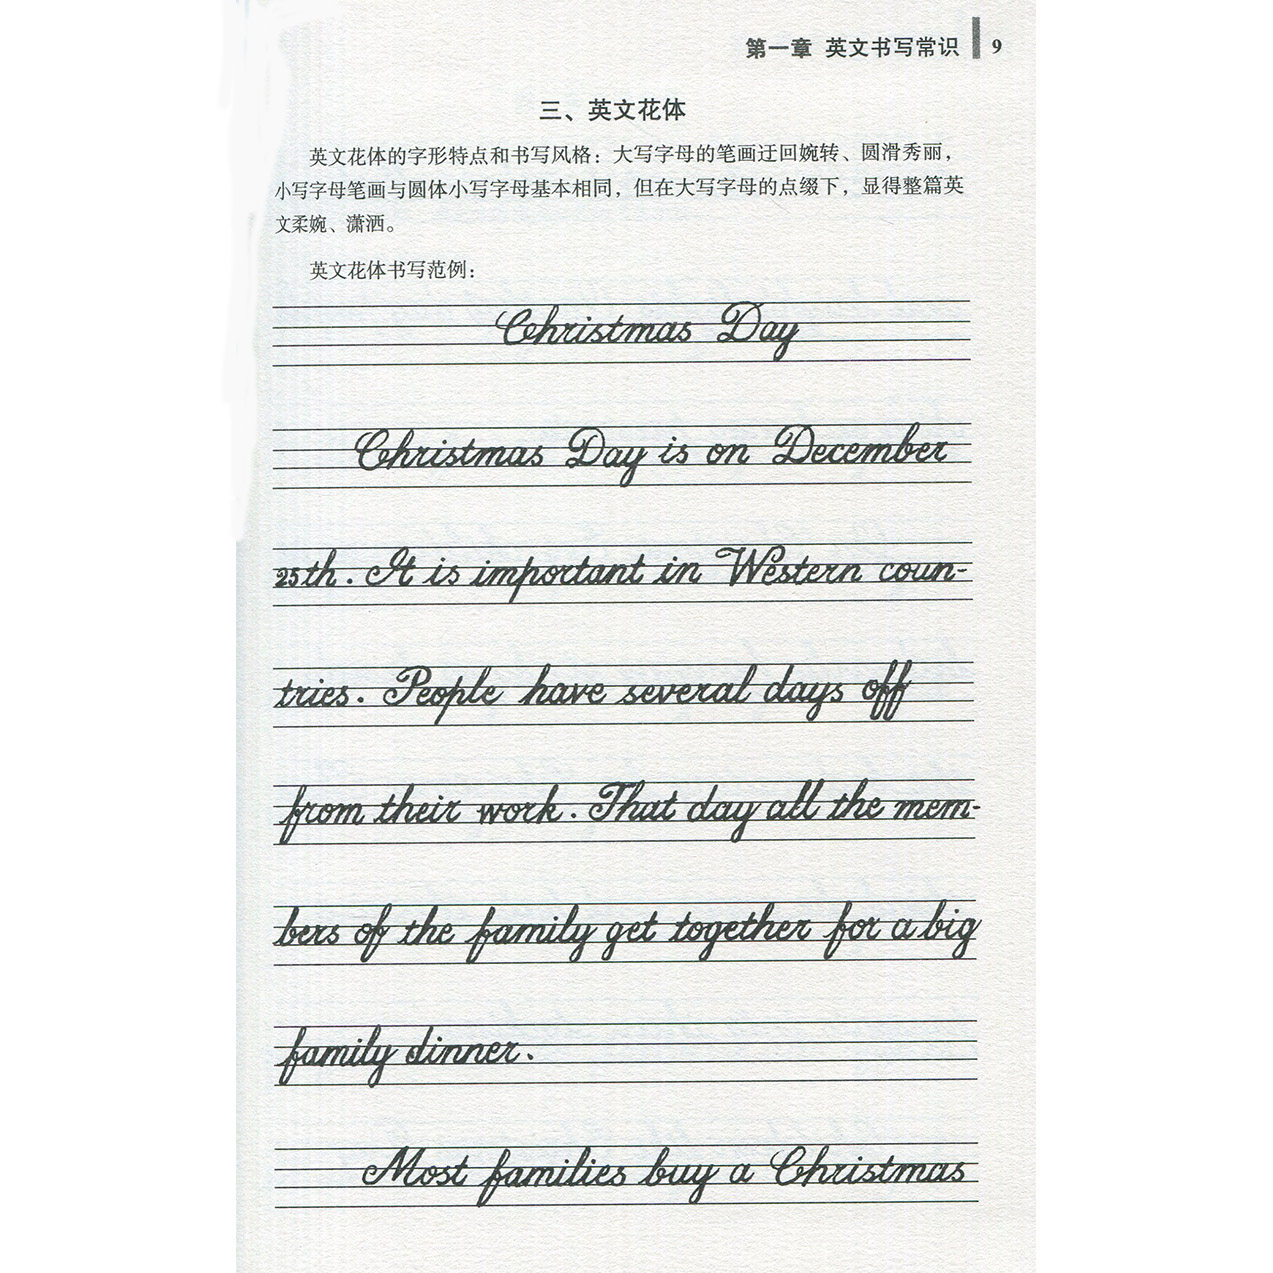 第一章 英文书写常识 9
三、英文花体
英文花体的字形特点和书写风格：大写字母的笔画迂回婉转、圆滑秀丽，
小写字母笔画与圆体小写字母基本相同，但在大写字母的点缀下，显得整篇英
文柔婉、潇洒。
英文花体书写范例：
Christmas Day
Christmas Day is on December
25th. It is important in Western coun-
tries. People have several days off
from their work. That day all the mem-
bers of the family get together for a big
family dinner.
Most families buy a Christmas